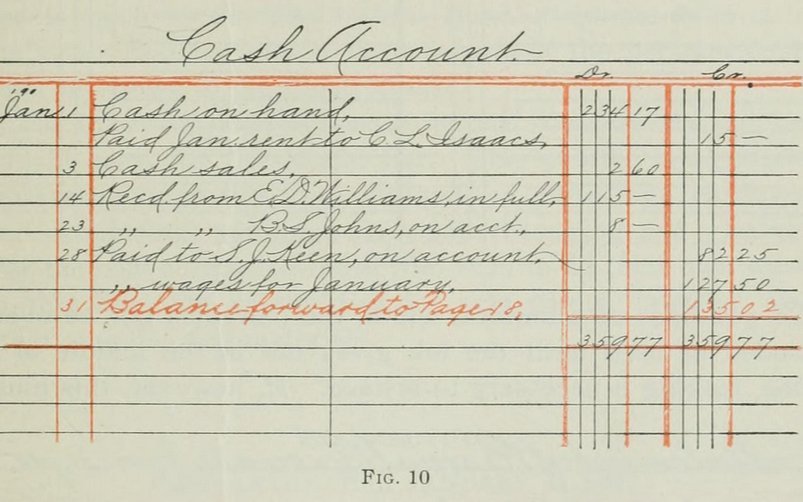 Cash Account.
Dr. Cr.
Jan 1 Cash on hand, 234 17
Paid Jan. rent to C. L. Isaacs, 15 —
3 Cash sales, 2 60
14 Recd from E. D. Williams, in full, 115 —
23 " " B. S. Johns, on acct., 8 —
28 Paid to S. J. Keen, on account, 82 25
" wages for January, 127 50
31 Balance forward to Page 18, 135 02
359 77 359 77
FIG. 10